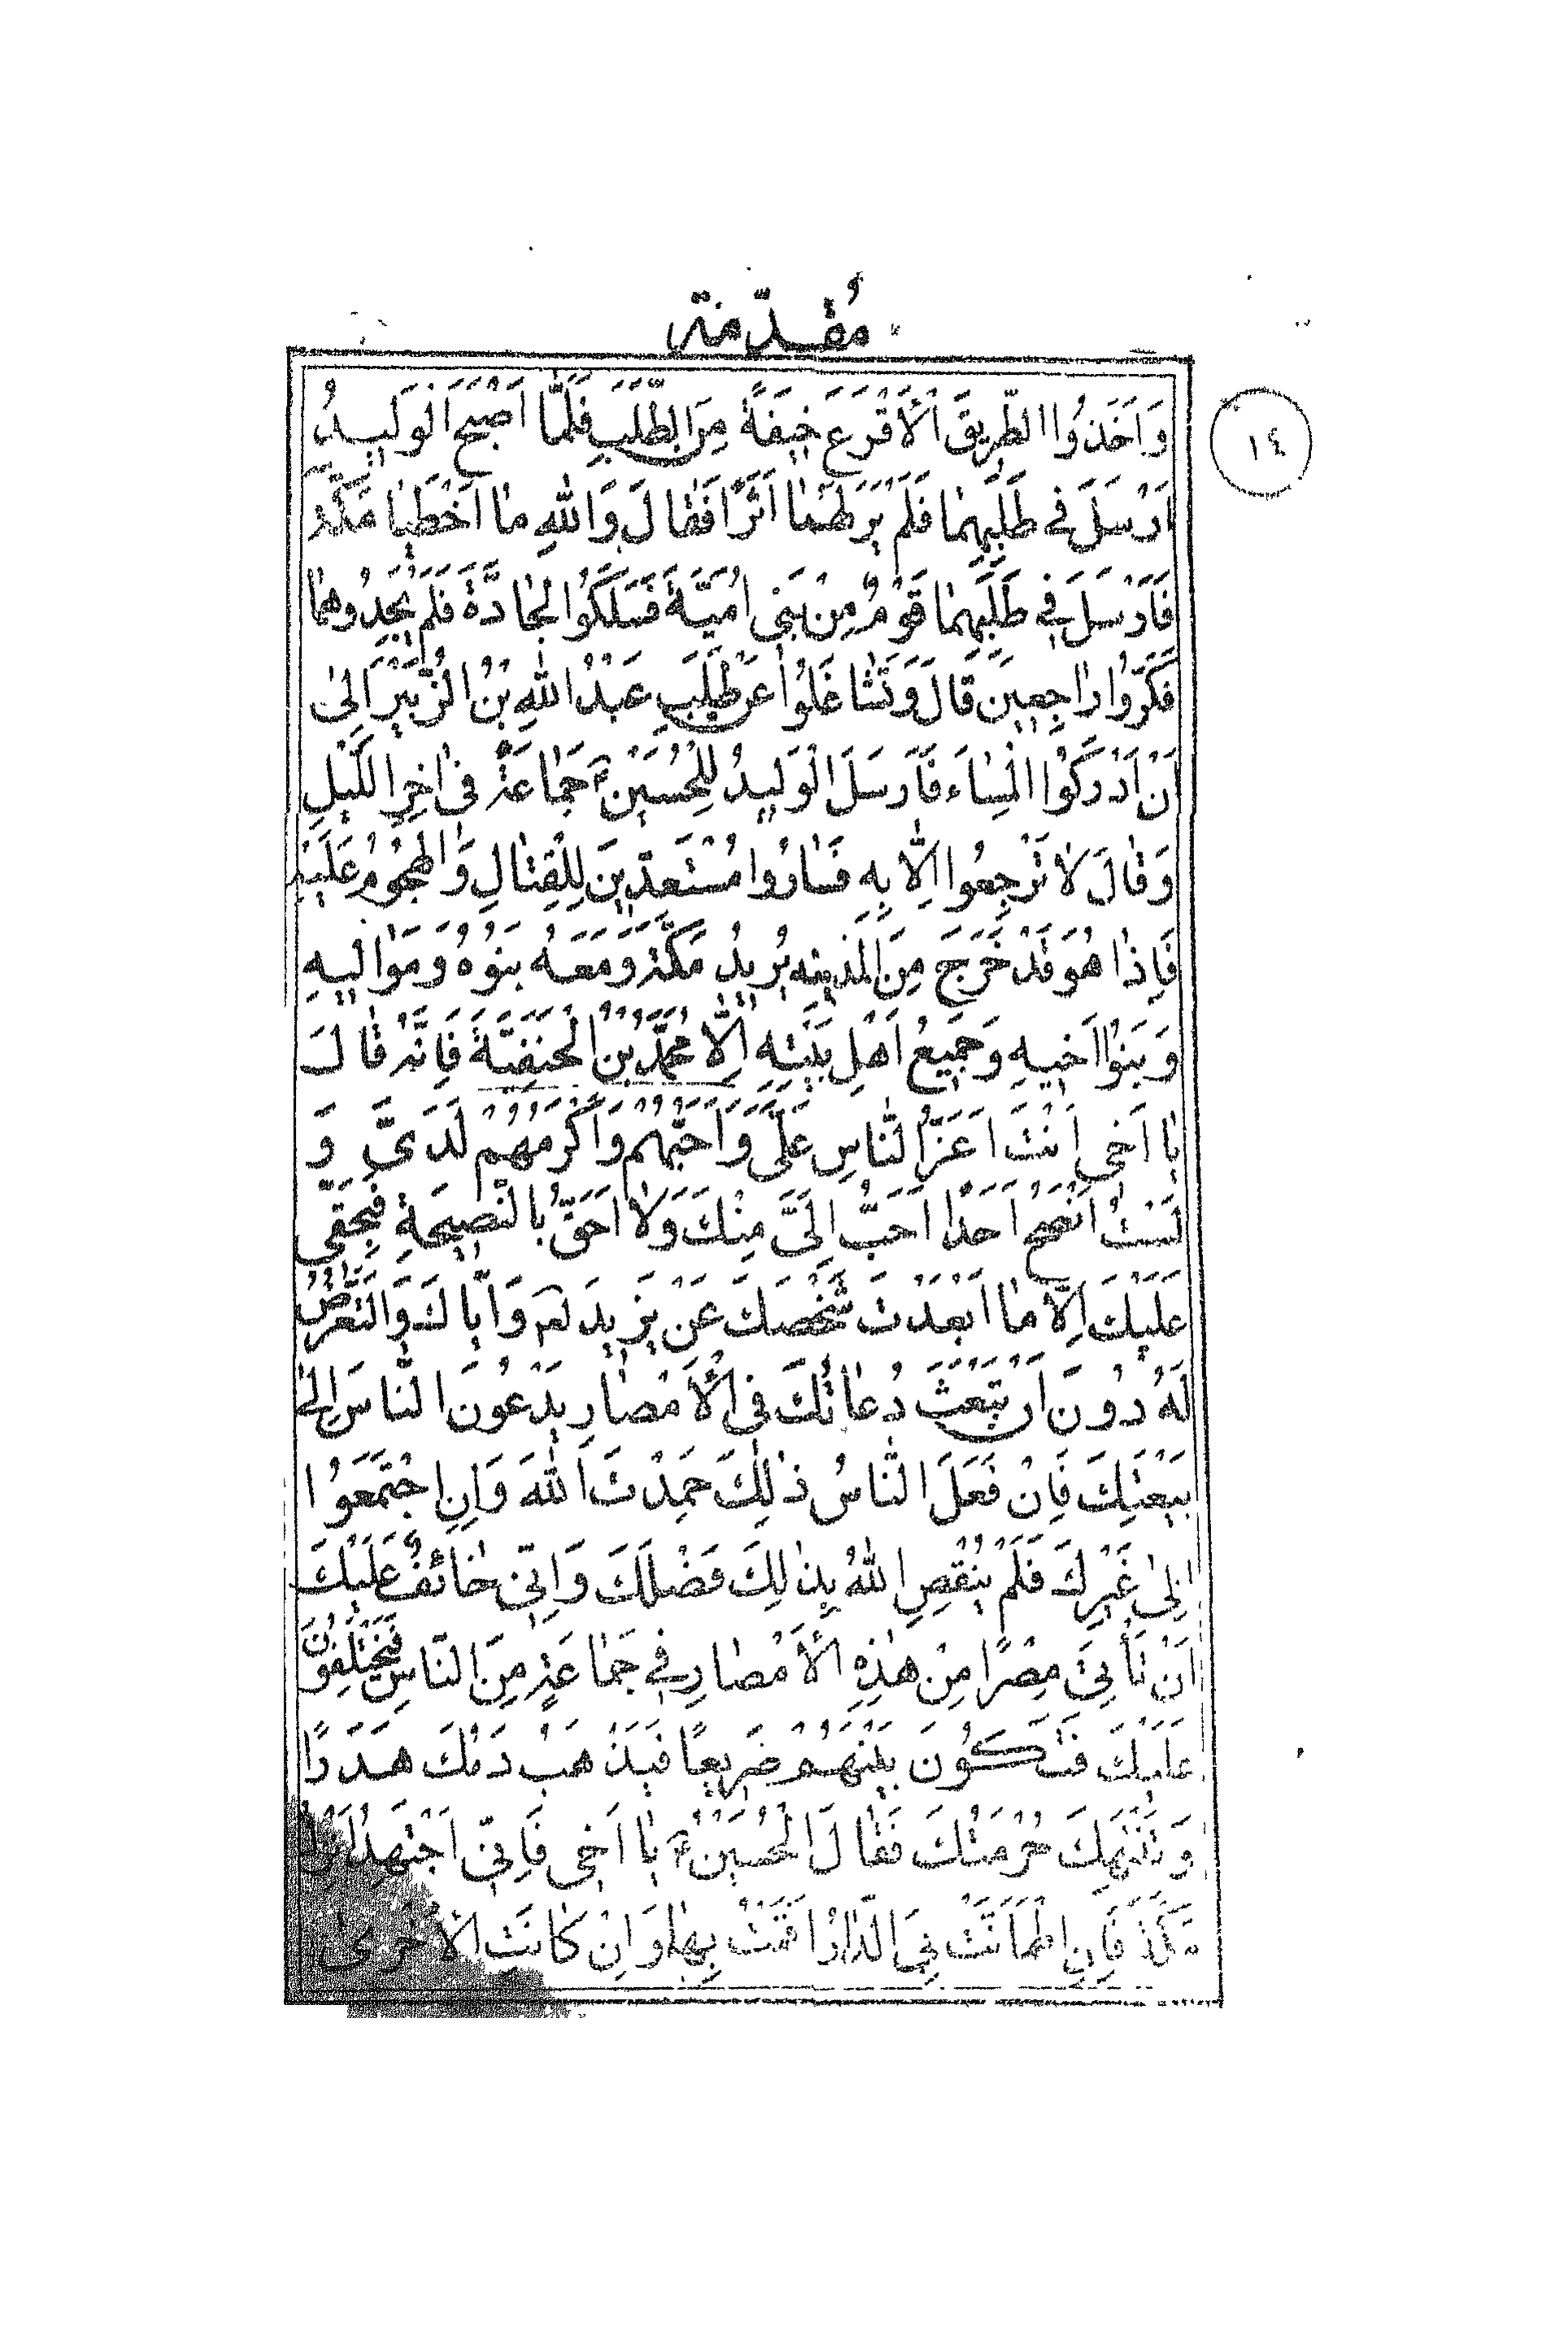 مُقدّمة
١٤
وَاَخَذُوا الطَّرِيقَ الْاَقْرَعَ خِيفَةً مِنَ الطَّلَبِ فَلَمَّا اَصْبَحَ الْوَلِيدُ
اَرْسَلَ فى طَلَبِهِمٰا فَلَمْ يَرَ لَهُمٰا اَثَرًا فَقٰالَ وَاللّٰهِ مٰا اَخْطَيٰا مَكَّةَ
فَاَرْسَلَ فى طَلَبِهِمٰا قَوْمٌ مِنْ بَنى اُمَيَّةَ فَسَلَكُوا الْجٰادَّةَ فَلَمْ يَجِدُوهُمٰا
فَكَرُّوا رٰاجِعِينَ قَالَ وَتَشٰاغَلُوا عَنْ طَلَبِ عَبْدُ اللّٰهِ بْنُ الزُّبَيْرِ اِلىٰ
اَنْ اَدْرَكُوا الْمِسٰاءَ فَاَرسَلَ الْوَلِيدُ لِلْحُسَيْنِ ع جَمٰاعَةً فى اٰخِرِ اللَّيْلِ
وَقٰالَ لاٰ تَرْجِعُوا اِلّٰا بِهِ فَسٰارُوا مُسْتَعِدّينَ لِلْقِتٰالِ وَالْهُجُومُ عَلَيْهِ
فَاِذٰا هُوَ قَدْ خَرَجَ مِنَ الْمَدِينِه يُرِيدُ مَكَّةَ وَمَعَهُ بَنُوهُ وَمَوٰالِيهِ
وَبَنُوا اَخيهِ وَجَمِيعُ اَهْلِ بَيْتِهِ اِلّٰا مُحَمَّدُ بْنُ الْحَنَفِيَّةَ فَاِنَّهُ قٰالَ
يٰا اَخى اَنْتَ اَعَزُّ النّٰاسِ عَلَىَّ وَاَحَبُّهُم وَاَكْرَمُهُمْ لَدَىَّ وَ
لَسْتُ اَنْصَحُ اَحَدًا اَحَبُّ اِلَىَّ مِنْكَ وَلاٰ اَحَقُّ بِالنَّصِيحَةِ فَبِحَقّى
عَلَيْكَ اِلّٰا مٰا اَبْعَدْتَ شَخْصَكَ عَنْ يَزِيدَ لعه وَاِيّٰاكَ وَالتَّعَرُّضُ
لَهُ دُونَ اَنْ تَبْعَثَ دُعٰاتُكَ فى الْاَمْصٰارِ يَدْعُونَ النّٰاسَ اِلىٰ
بَيْعَتِكَ فَاِنْ فَعَلَ النّٰاسُ ذٰلِكَ حَمِدْتَ اللّٰهَ وَاِنِ اجْتَمَعُوا
اِلىٰ غَيْرِكَ فَلَمْ يَنْقُصِ اللّٰهُ بِذٰلِكَ فَضْلَكَ وَاِنّى خٰائِفٌ عَلَيْكَ
اَنْ تَأْتىَ مِصْرًا مِنْ هٰذِهِ الْاَمْصٰارِ فى جَمٰاعَةٍ مِنَ النّٰاسِ فَيَخْتَلِفُونَ
عَلَيْكَ فَتَكُونَ بَيْنَهُمْ صَرِيعًا فَيَذْهَبُ دَمُكَ هَدَرًا
وَتَنْتَهِكَ حُرْمَتُكَ فَقٰالَ الْحُسَيْنُ ع يٰا اَخى فَاِنّى اَجْتَهِدُ اَنْزِلُ
مَكَّةَ فَاِنِ اطْمَاَنَّتْ بِىَ الدّٰارُ اَقَمْتُ بِهٰا وَاِنْ كٰانَتِ الْاُخْرىٰ